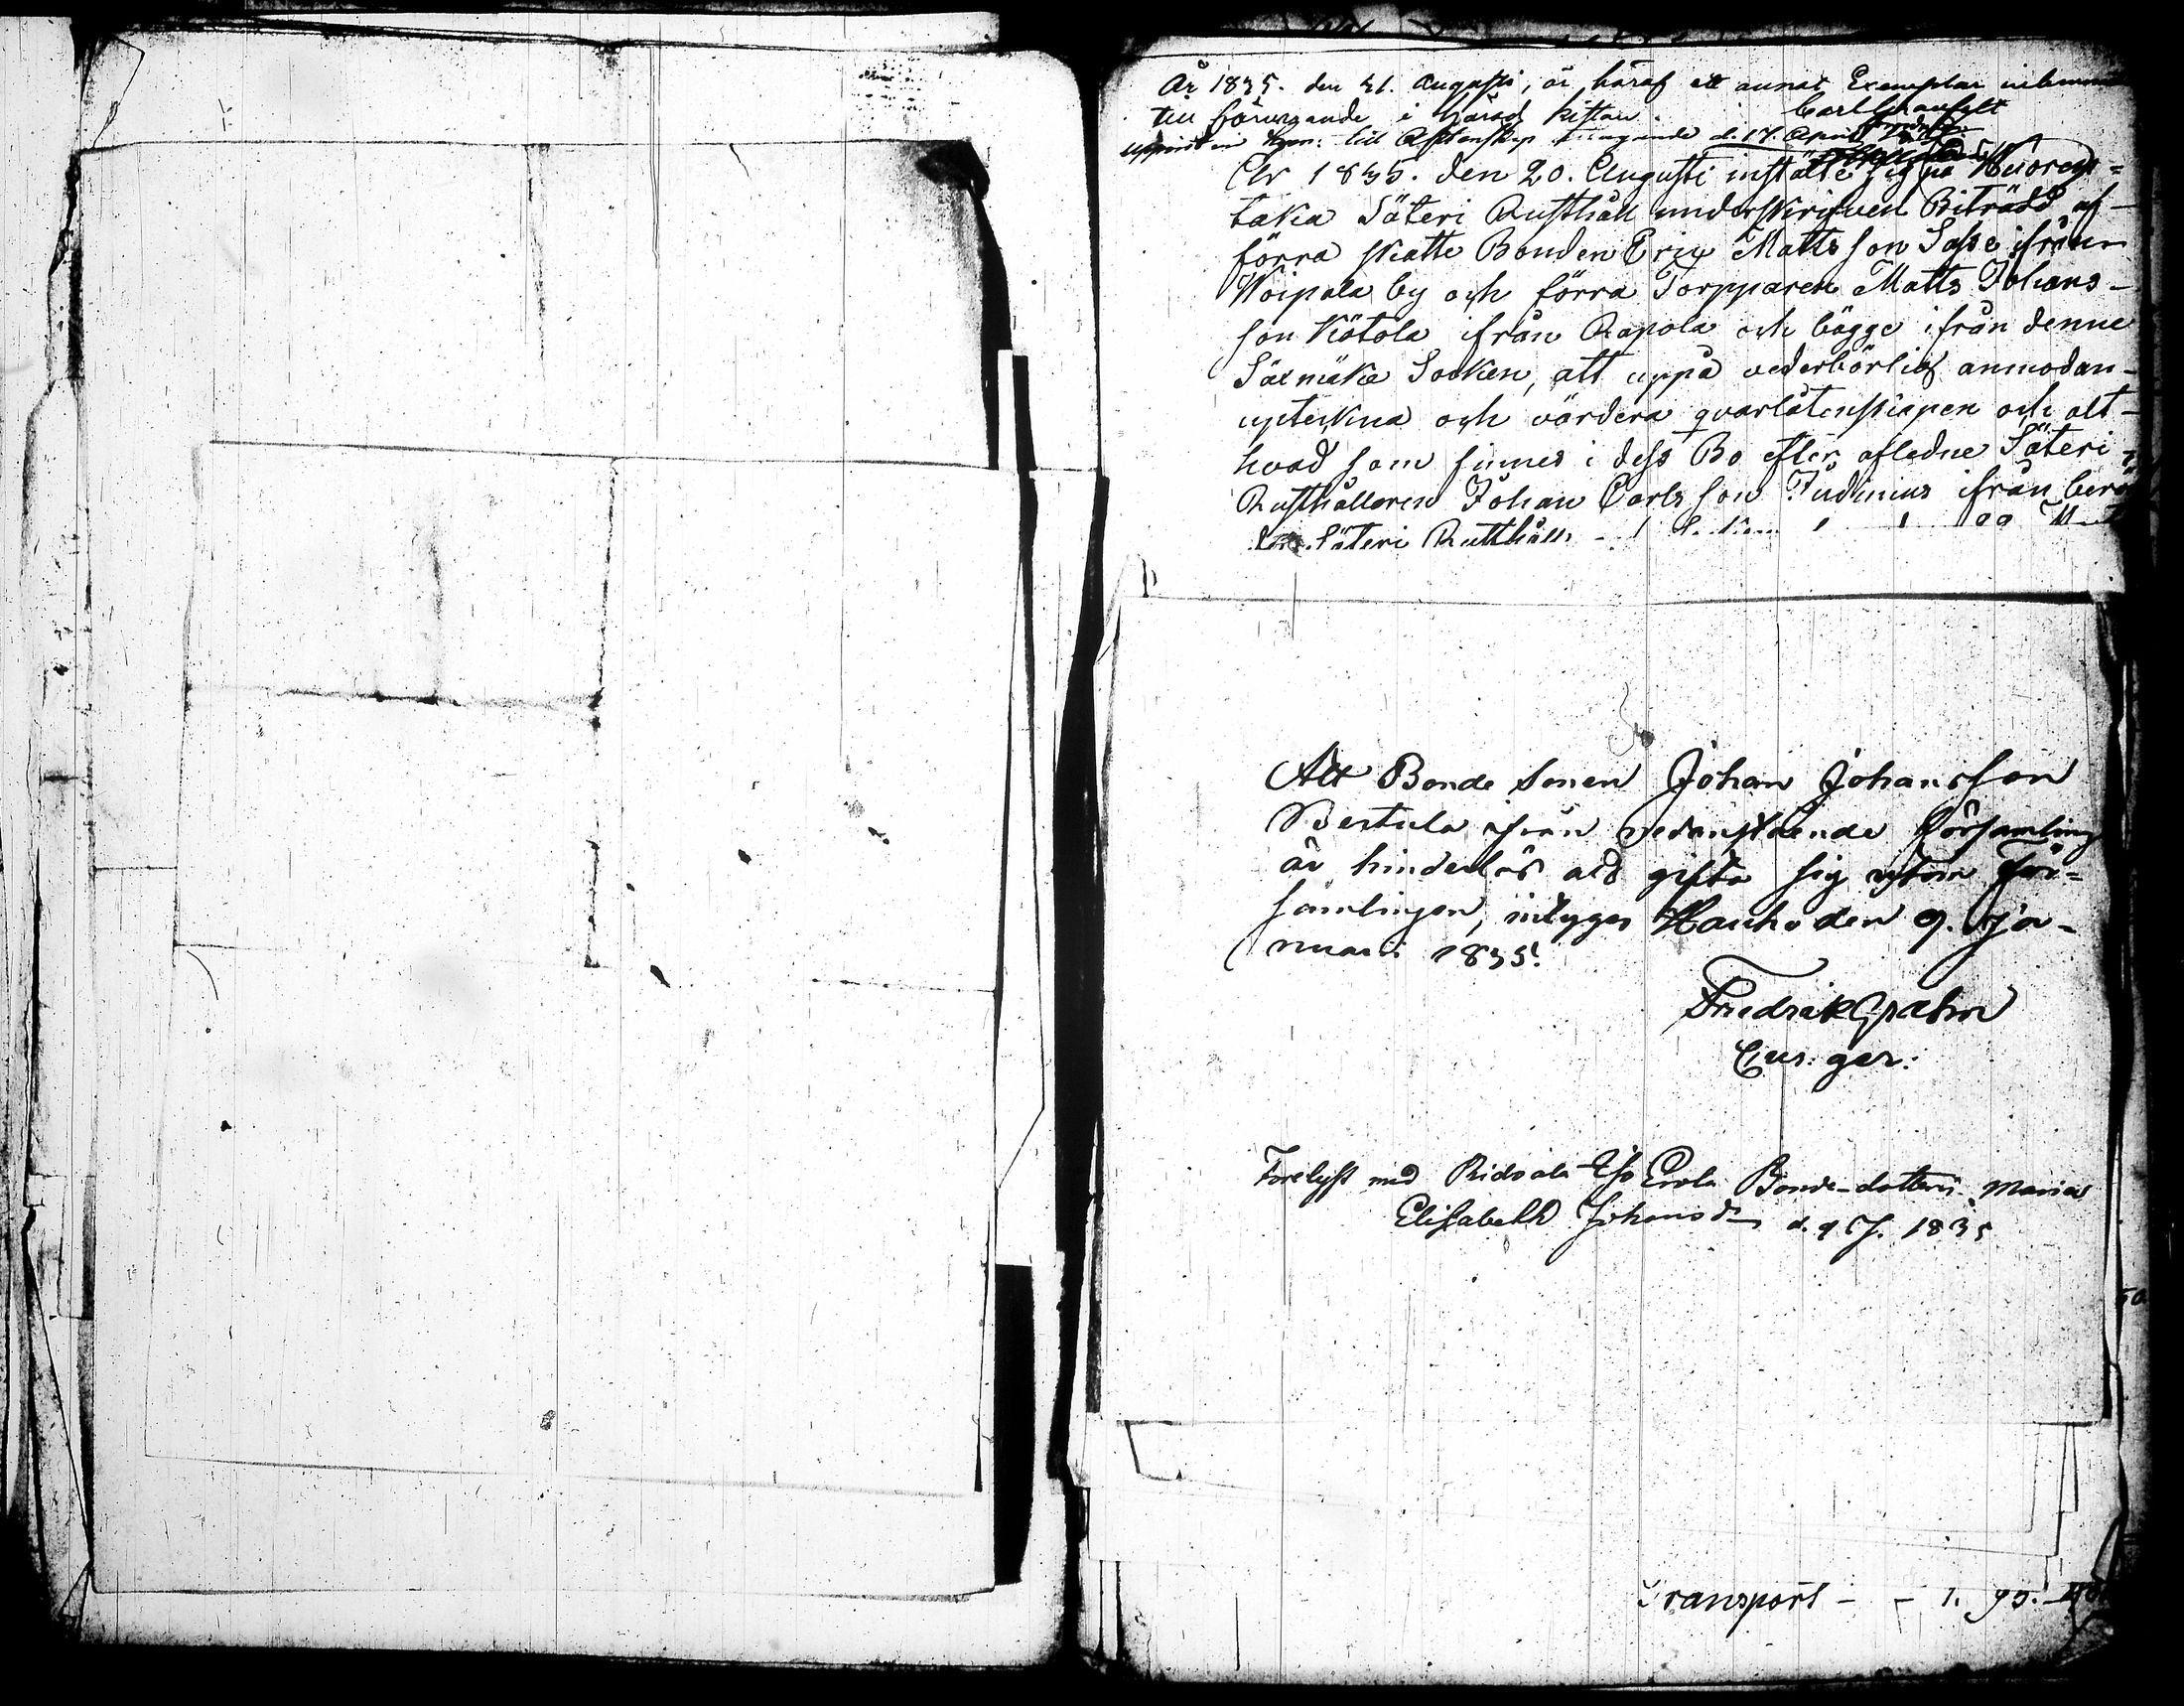 År 1835. den 21. Augusti, är häraf ett annat Exemplar inlemnat
till förvarande i Härads kistan. Carl Granfelt
till d. 17. April
År 1835. den 20. Augusti instälte sig på Wuoren=
taka Säteri Rusthåll underskrifven Biträdd af
förra skatte Bonden Eric Mattsson Sasse ifrån
Woipala by och förra Torpparen Matts Johans-
son Kötola ifrån Rapola och bägge ifrån denne
Säxmäke Socken, att uppå vederbörlig anmodan
upteckna och värdera qvarlåtenskapen och alt
hvad som finnes i dess Bo efter aflidne Säteri
Rusthållaren Johan Carlsson Judinius ifrån
Säteri Rusthåll
Att Bonde Sonen Johan Johansson
Bertula ifrån nedanstående Församling
är hinderlös att gifta sig utom För=
samlingen, intygar Hauho den 9. Ja-
nuari 1835.
Fredrik Spahn
Cur. ger:
Förelyst med Ridvala Eso Erola Bonde-dottern Maria
Elisabeth Johansd. d. 9 J. 1835
Transport - - 1. 95.